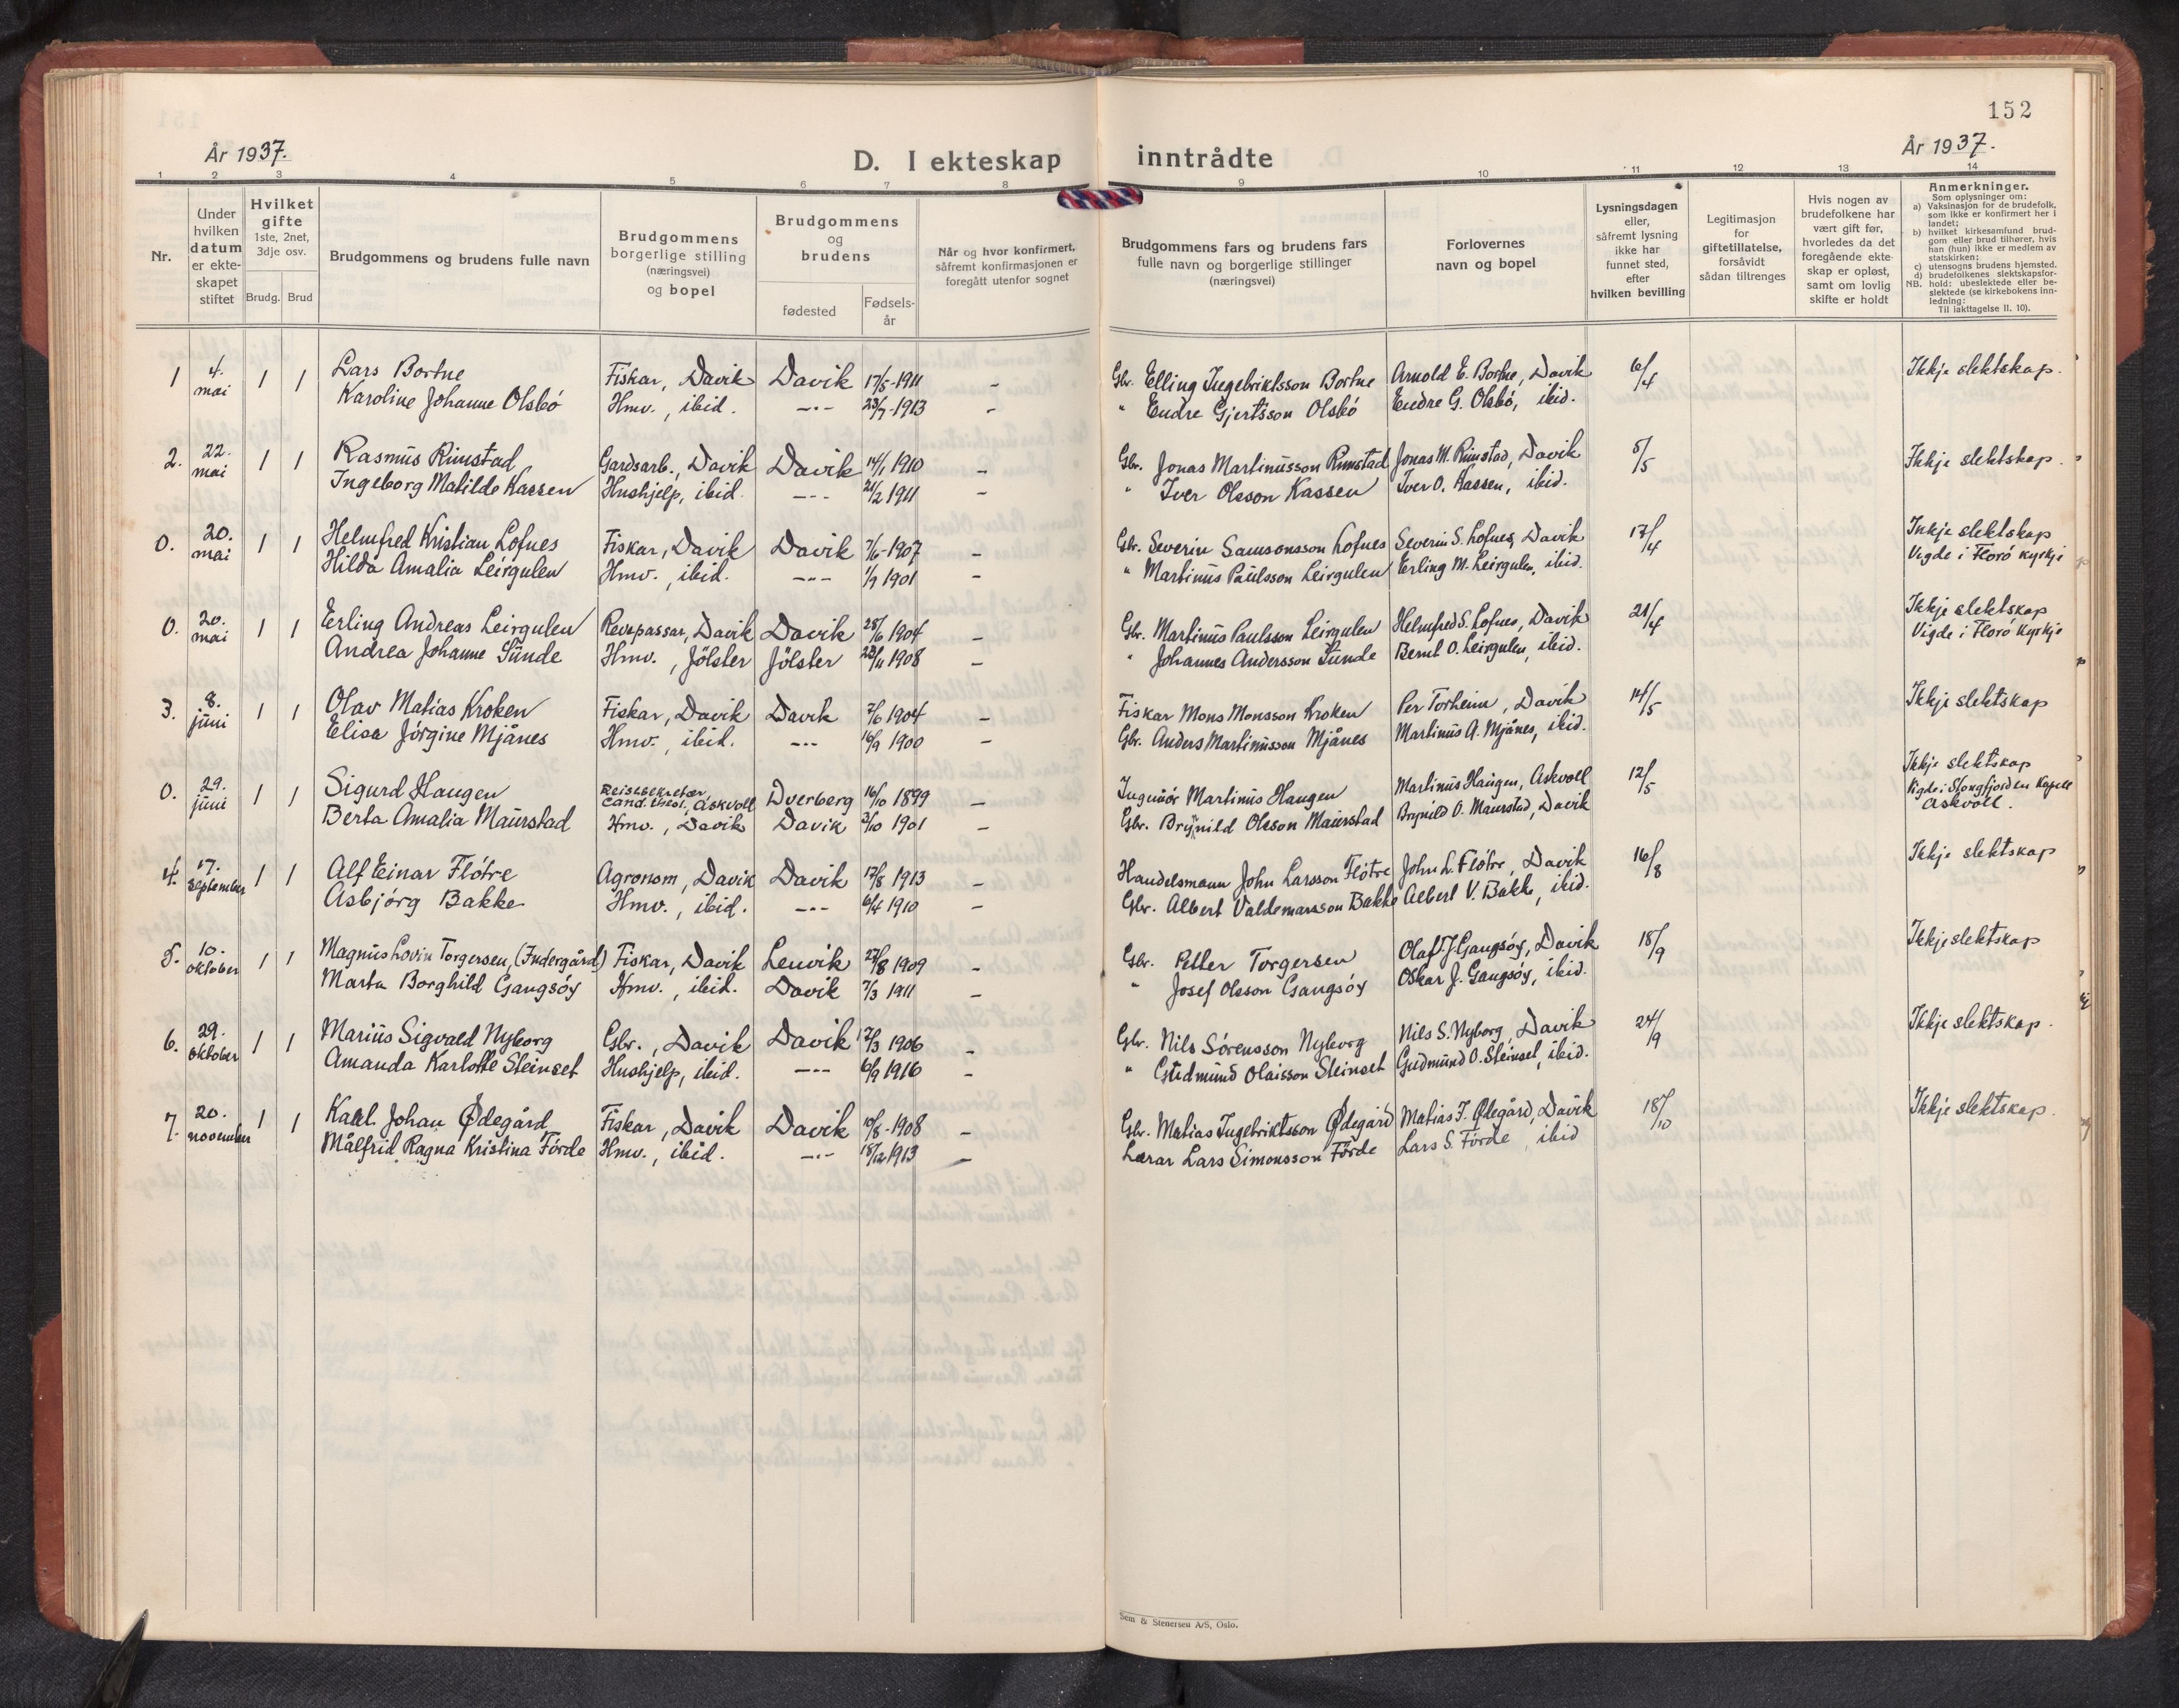 152
År 1937.
D. I ekteskap inntrådte
År 1937.
1 2 3 4 5 6 7 8 9 10 11 12 13 14
Nr.
Under hvilken datum er ekte-skapet stiftet
Hvilket gifte 1ste, 2net, 3dje osv.
Brudg. Brud
Brudgommens og brudens fulle navn
Brudgommens borgerlige stilling (næringsvei) og bopel
Brudgommens og brudens
fødested
Fødsels-år
Når og hvor konfirmert, såfremt konfirmasjonen er foregått utenfor sognet
Brudgommens fars og brudens fars fulle navn og borgerlige stillinger (næringsvei)
Forlovernes navn og bopel
Lysningsdagen eller, såfremt lysning ikke har funnet sted, efter hvilken bevilling
Legitimasjon for giftetillatelse, forsåvidt sådan tiltrenges
Hvis nogen av brudefolkene har vært gift før, hvorledes da det foregående ekte-skap er opløst, samt om lovlig skifte er holdt
Anmerkninger.
Som oplysninger om:
a) Vaksinasjon for de brudefolk, som ikke er konfirmert her i landet;
b) hvilket kirkesamfund brud-gom eller brud tilhører, hvis han (hun) ikke er medlem av statskirken;
c) utensogns brudens hjemsted.
d) brudefolkenes slektskapsfor-hold: ubeslektede eller be-slektede (se kirkebokens inn-ledning:
NB.
Til iakttagelse II. 10).
1 4. mai 1 1 Lars Bortne Fiskar, Davik Davik 17/5-1911 - Gbr. Elling Ingebriktsson Bortne Arnold E. Bortne, Davik 6/4 Ikkje slektskap.
Karoline Johanne Olsbö Hmv., ibid. -"- 23/7-1913 - " Endre Gjertsson Olsbö Endre G. Olsbö, ibid.
2. 22. mai 1 1 Rasmus Rimstad Gardsarb., Davik Davik 14/1 1910 - Gbr. Jonas Martinusson Rimstad Jonas M. Rimstad, Davik 5/5 Ikkje slektskap.
Ingeborg Matilde Kassen Hushjelp, ibid. -"- 21/2 1911 - " Iver Olsson Kassen Iver O. Kassen, ibid.
0. 20. mai 1 1 Helmfred Kristian Lofnes Fiskar, Davik Davik 7/6-1907 - Gbr. Severin Samsonsson Lofnes Severin S. Lofnes, Davik 17/4 Inkje slektskap
Hilda Amalia Leirgulen Hmv., ibid. -"- 1/9 1901 - " Martinus Paulsson Leirgulen Erling M. Leirgulen, ibid. Vigde i Florö kyrkje
0. 20. mai 1 1 Erling Andreas Leirgulen Revepassar, Davik Davik 28/6 1904 - Gbr. Martinus Paulsson Leirgulen Helmfred S. Lofnes, Davik 21/4 Ikkje slektskap
Andrea Johanne Sunde Hmv., Jölster Jölster 23/11 1908 - " Johannes Andersson Sunde Bernt O. Leirgulen, ibid. Vigde i Florö kyrkje
3. 8. juni 1 1 Olav Matias Kroken Fiskar, Davik Davik 2/6 1904 - Fiskar Mons Monsson Kroken Per Torheim, Davik 14/5 Ikkje slektskap
Elisa Jörgine Mjånes Hmv., ibid. -"- 16/9 1900 - Gbr. Anders Martinusson Mjånes Martinus A. Mjånes, ibid.
0. 29. juni 1 1 Sigurd Haugen Reisesekretær cand. theol., Askvoll Dverberg 16/10 1899 - Ingeniör Martinus Haugen Martinus Haugen, Askvoll 12/5 Ikkje slektskap
Berta Amalia Maurstad Hmv., Davik Davik 3/10 1901 - Gbr. Brynild Olsson Maurstad Brynild O. Maurstad, Davik Vigde i Stongfjorden kapell Askvoll.
4. 17. september 1 1 Alf Einar Flötre Agronom, Davik Davik 17/8 1913 - Handelsmann John Larsson Flötre John L. Flötre, Davik 16/8 Ikkje slektskap
Asbjörg Bakke Hmv., ibid. -"- 6/4 1910 - Gbr. Albert Valdemarsson Bakke Albert V. Bakke, ibid.
5. 10. oktober 1 1 Magnus Lovin Torgersen, (Indergård) Fiskar, Davik Lenvik 27/8 1909 - Gbr. Petter Torgersen Olaf J. Gangsöy, Davik 18/9 Ikkje slektskap
Marta Borghild Gangsöy Hmv., ibid. Davik 7/3 1911 - " Josef Olsson Gangsöy Oskar J. Gangsöy, ibid.
6. 29. oktober 1 1 Marius Sigvald Nyborg Gbr., Davik Davik 12/3 1906 - Gbr. Nils Sörensson Nyborg Nils S. Nyborg, Davik 24/9 Ikkje slektskap.
Amanda Karlotte Steinset Hushjelp, ibid. -"- 6/9 1916 - " Gudmund Olaisson Steinset Gudmund O. Steinset, ibid.
7. 20. november 1 1 Karl Johan Ødegård Fiskar, Davik Davik 10/8-1908 - Gbr. Matias Ingebriktsson Ødegård Matias I. Ødegård, Davik 18/10 Ikkje slektskap.
Målfrid Ragna Kristina Förde Hmv., ibid. -"- 15/12 1913 - Lærar Lars Simonsson Förde Lars S. Förde, ibid
Sem & Stenersen A/S, Oslo.